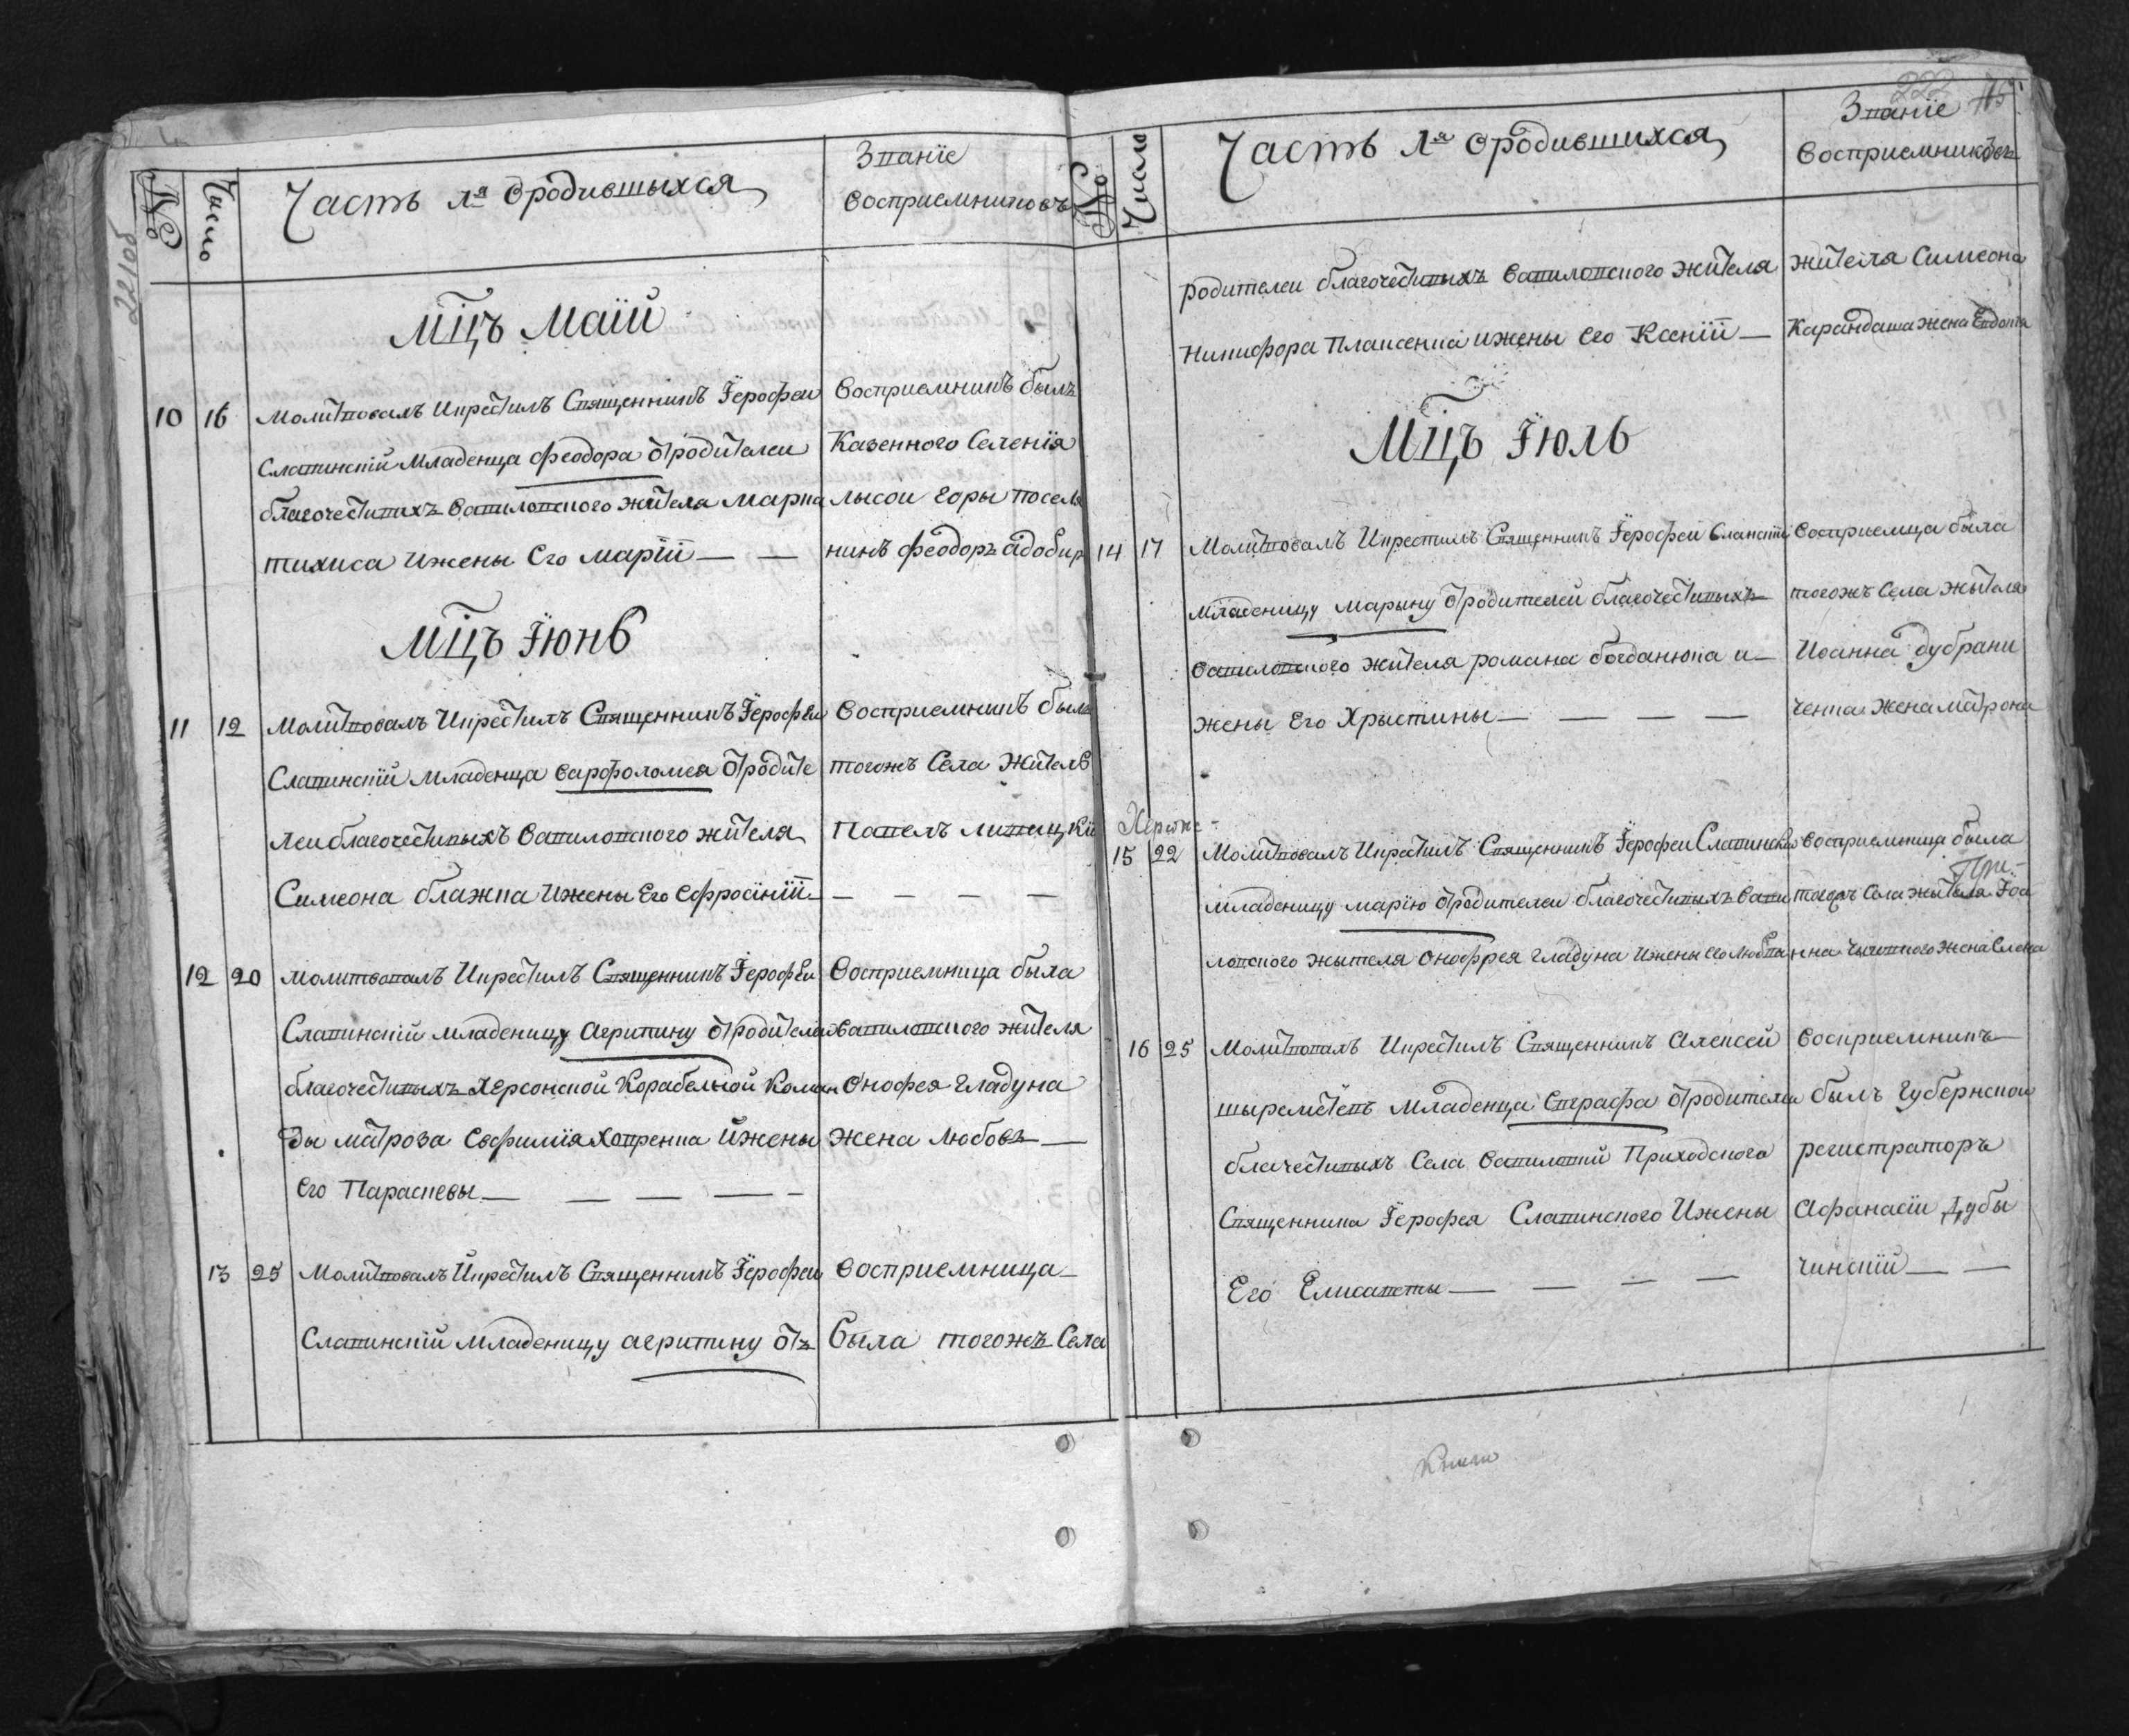 221об
№
Число
Часть 1я Ородившыхся
Званїе
восприемниковъ
Мцъ Маїй
10 16 Молитвовалъ Икрестилъ Священникъ Їерофеи
Славинскїй Младенца Феодора от родителеи
благочестивихъ Вавиловского жителя Марка
тихиса Ижены Его Марїй — —
Восприемникъ былъ
Казенного Селенїя
лысои Горы поселя
нинъ Феодоръ
Мцъ Їюнь
11 12 Молитвовалъ Икрестилъ Священникъ Їерофеи
Славинскїй Младенца варфоломея от родите
леи благочестивыхъ Вавиловского жителя
Симеона блажка Ижены Его Ефросїнїй
Восприемникъ былъ
тогожъ Села Житель
Павелъ
— — — —
12 20 Молитвовалъ Икрестилъ Священникъ Їерофеи
Славинскїй младеницу Агрипину от родителеи
благочестивыхъ Херсонской Корабельной Коман
ды матроза Евфимїя Ховренка Ижены
Его Параскевы — — — —
Восприемница была
Вавиловского жителя
Онофея Гладуна
жена Любовъ —
13 25 Молитвовалъ Икрестилъ Священникъ Їерофеи
Славинскїй младеницу агрипину отъ
Восприемница
была тогожъ Села
222
№
Число
Часть 1я Ородившихся
Званїе
Восприемниковъ
родителеи благочестивыхъ Вавиловского жителя
Никифора Плаксенка ижены Его Ксенїй —
жителя Симеона
Карандаша жена Евдокїя
Мцъ Їюль
14 17 Молитвовалъ Икрестилъ Священникъ Їерофеи
младеницу марыну от родителей благочестивыхъ
Вавиловского жителя романа богданюка и
жены Его Хрыстины — — — —
Восприемица была
тогожъ Села жытеля
Иоанна дубрани
ченка жена матрона
15 22 Молитвовалъ Икрестилъ Священникъ Їерофеи Славинскїй
младеницу марїю от родителеи благочестивыхъ Вави
ловского жытеля Онофрея гладуна Ижены Его
восприемница была
тогожъ Села жытеля Їоа
нна жена Елена
16 25 Молитвовалъ Икрестилъ Священникъ Алексей
шыреметевъ Младенца от родителеи
благчестивыхъ Села Вавиловки Приходского
Священника Їерофея Славинского Ижены
Его Елисаветы — — — —
восприемникъ
былъ Губернской
регистраторъ
Афанасїи Дубы
чинскїй — —